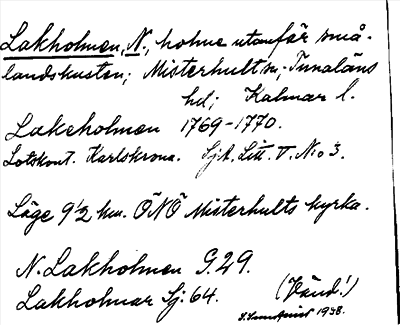 Lakholmen, N., holme utanför små-
landskusten; Misterhult sn; Tunaläns
hd; Kalmar l.
Lakeholmen 1769-1770.
Lotskont. Karlskrona. SjA. Litt. V. No 3.
Läge 9 1/2 km. ÖNÖ Misterhults kyrka.
N. Lakholmen G. 29.
Lakholmar Sj. 64. (Vänd!)
1938.